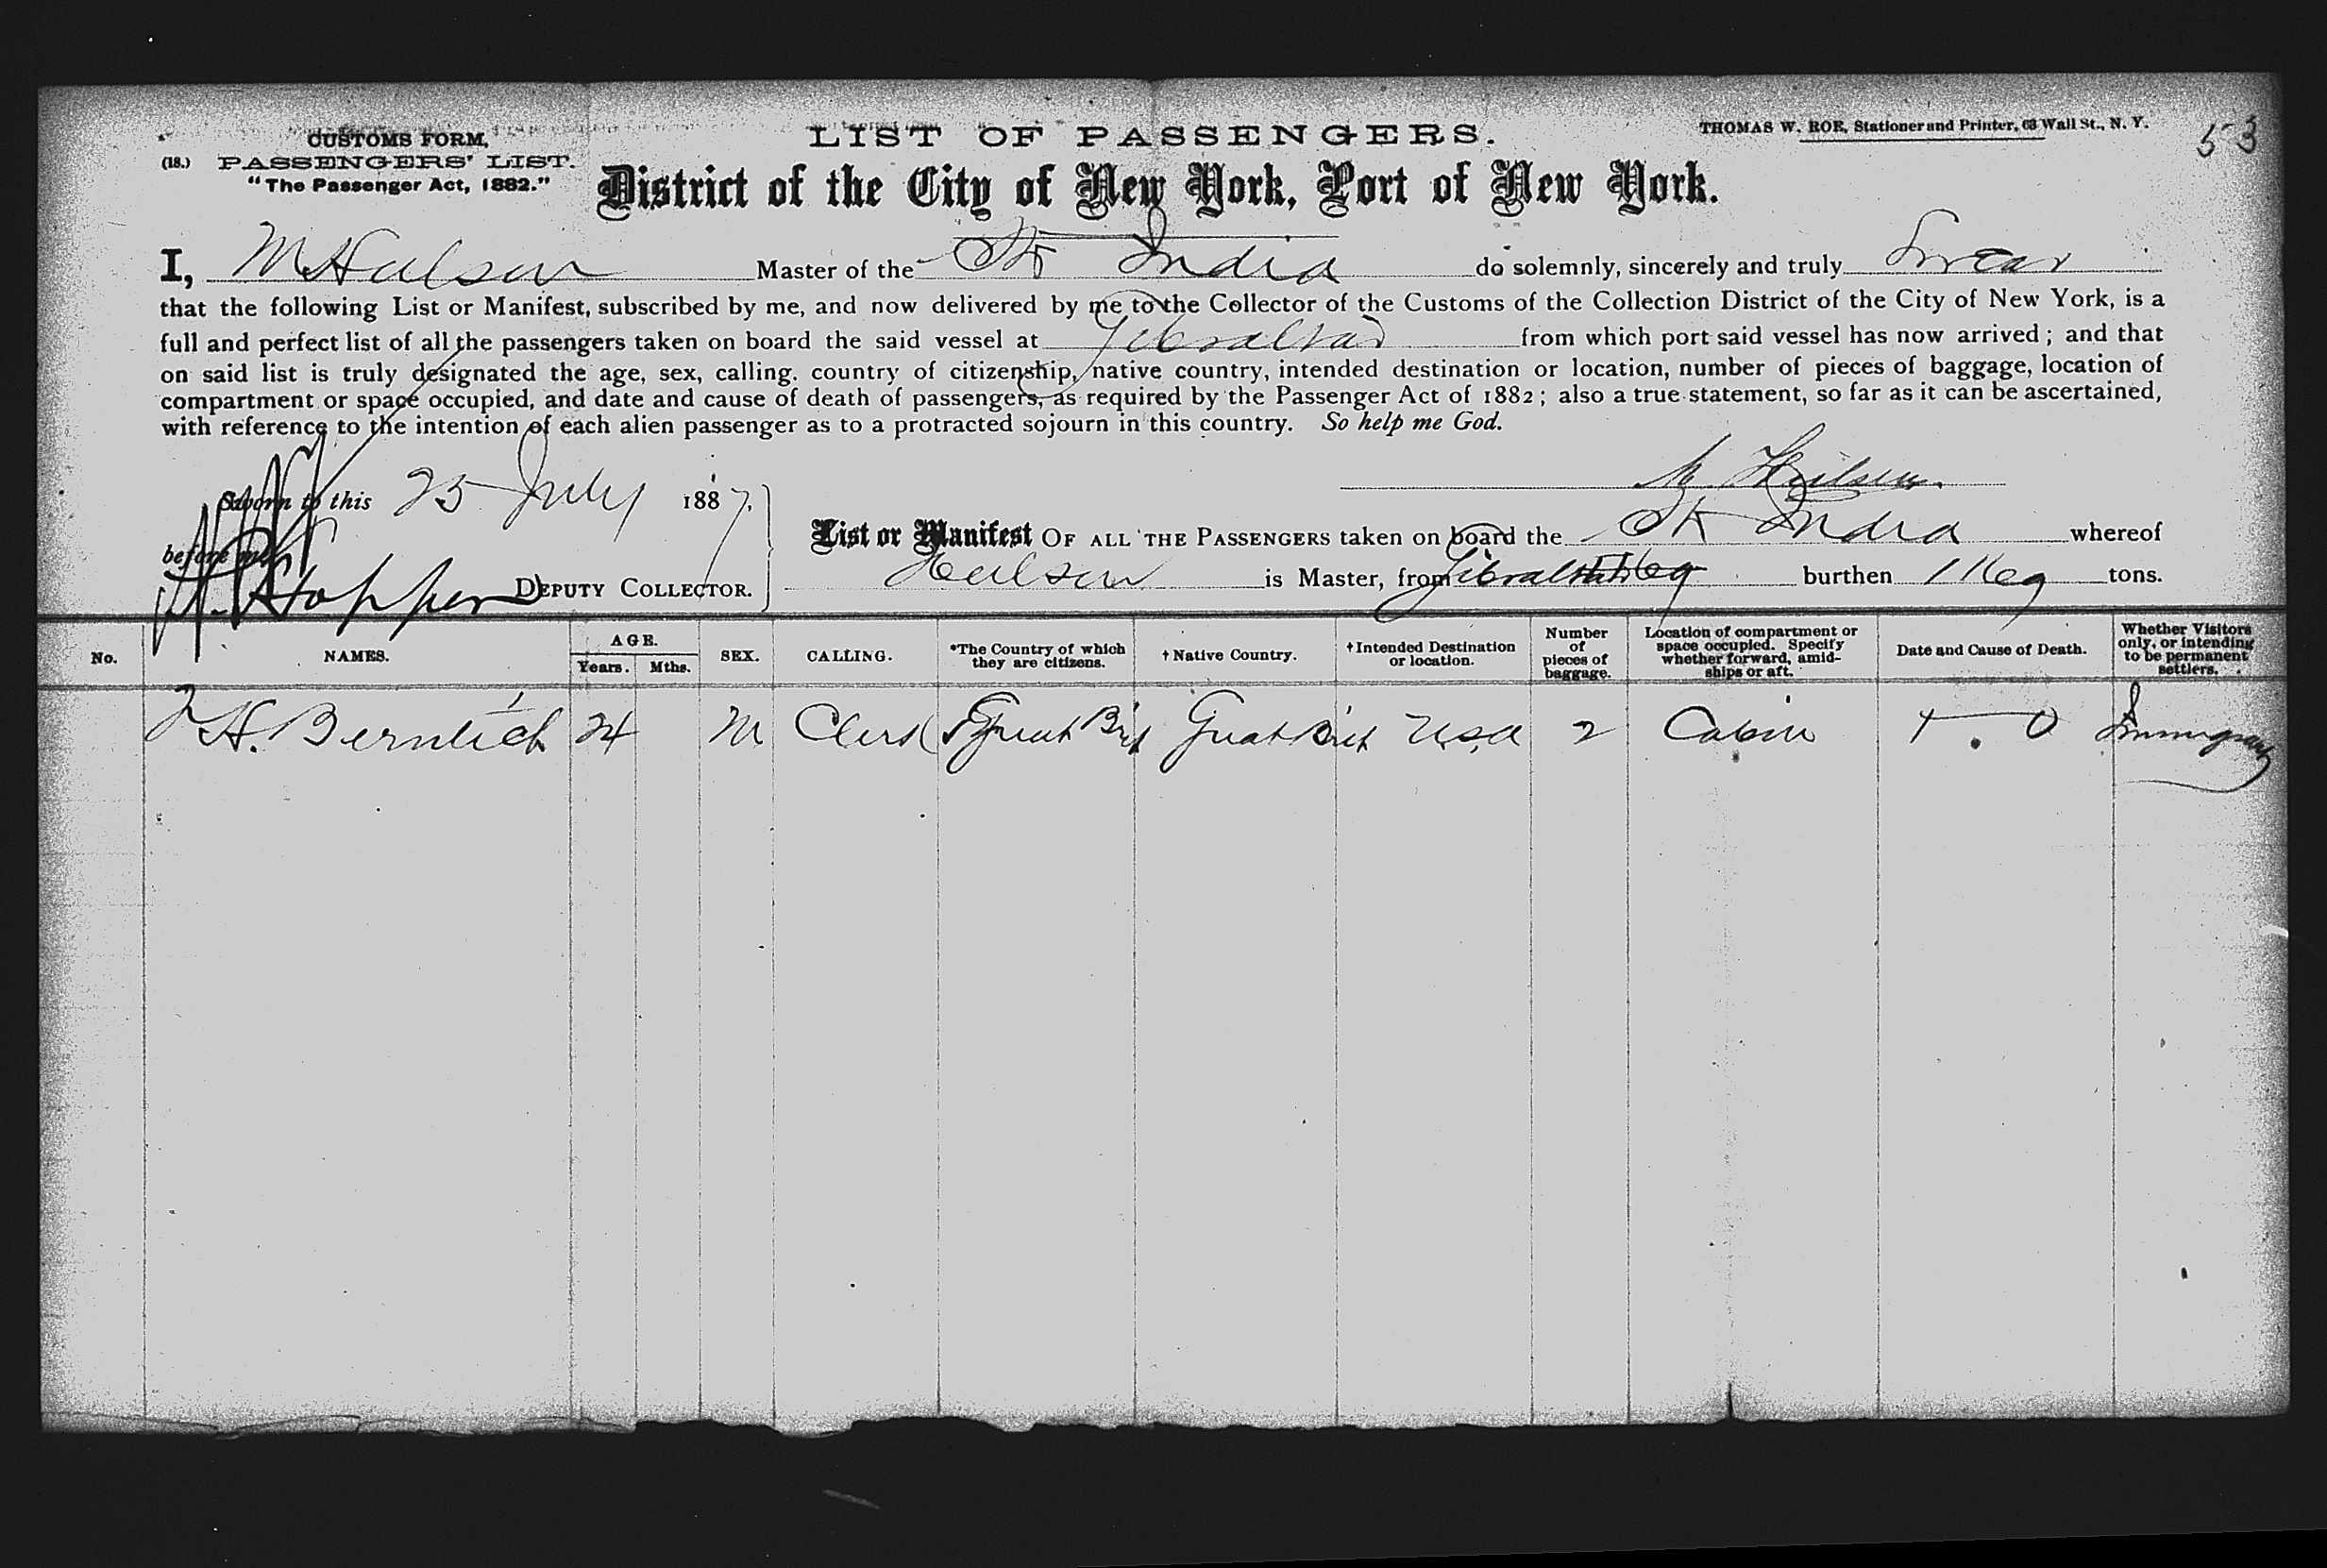 CUSTOMS FORM,
(18.) PASSENGERS' LIST.
"The Passenger Act, 1882."
LIST OF PASSENGERS.
THOMAS W. ROE, Stationer and Printer, 63 Wall St., N. Y.
53
District of the City of New York, Port of New York.
I, Master of the India do solemnly, sincerely and truly Swear
that the following List or Manifest, subscribed by me, and now delivered by me to the Collector of the Customs of the Collection District of the City of New York, is a
full and perfect list of all the passengers taken on board the said vessel at Gibraltar from which port said vessel has now arrived; and that
on said list is truly designated the age, sex, calling, country of citizenship, native country, intended destination or location, number of pieces of baggage, location of
compartment or space occupied, and date and cause of death of passengers, as required by the Passenger Act of 1882; also a true statement, so far as it can be ascertained,
with reference to the intention of each alien passenger as to a protracted sojourn in this country. So help me God.
Sworn to this 25 July 1887,
before me
DEPUTY COLLECTOR.
List or Manifest OF ALL THE PASSENGERS taken on board the India whereof
is Master, from Gibraltar burthen tons.
No. NAMES. AGE. Years. Mths. SEX. CALLING. *The Country of which they are citizens. †Native Country. †Intended Destination or location. Number of pieces of baggage. Location of compartment or space occupied. Specify whether forward, amidships or aft. Date and Cause of Death. Whether Visitors only, or intending to be permanent settlers.
H. 24 M Clerk Great Brit Great Brit USA 2 Cabin